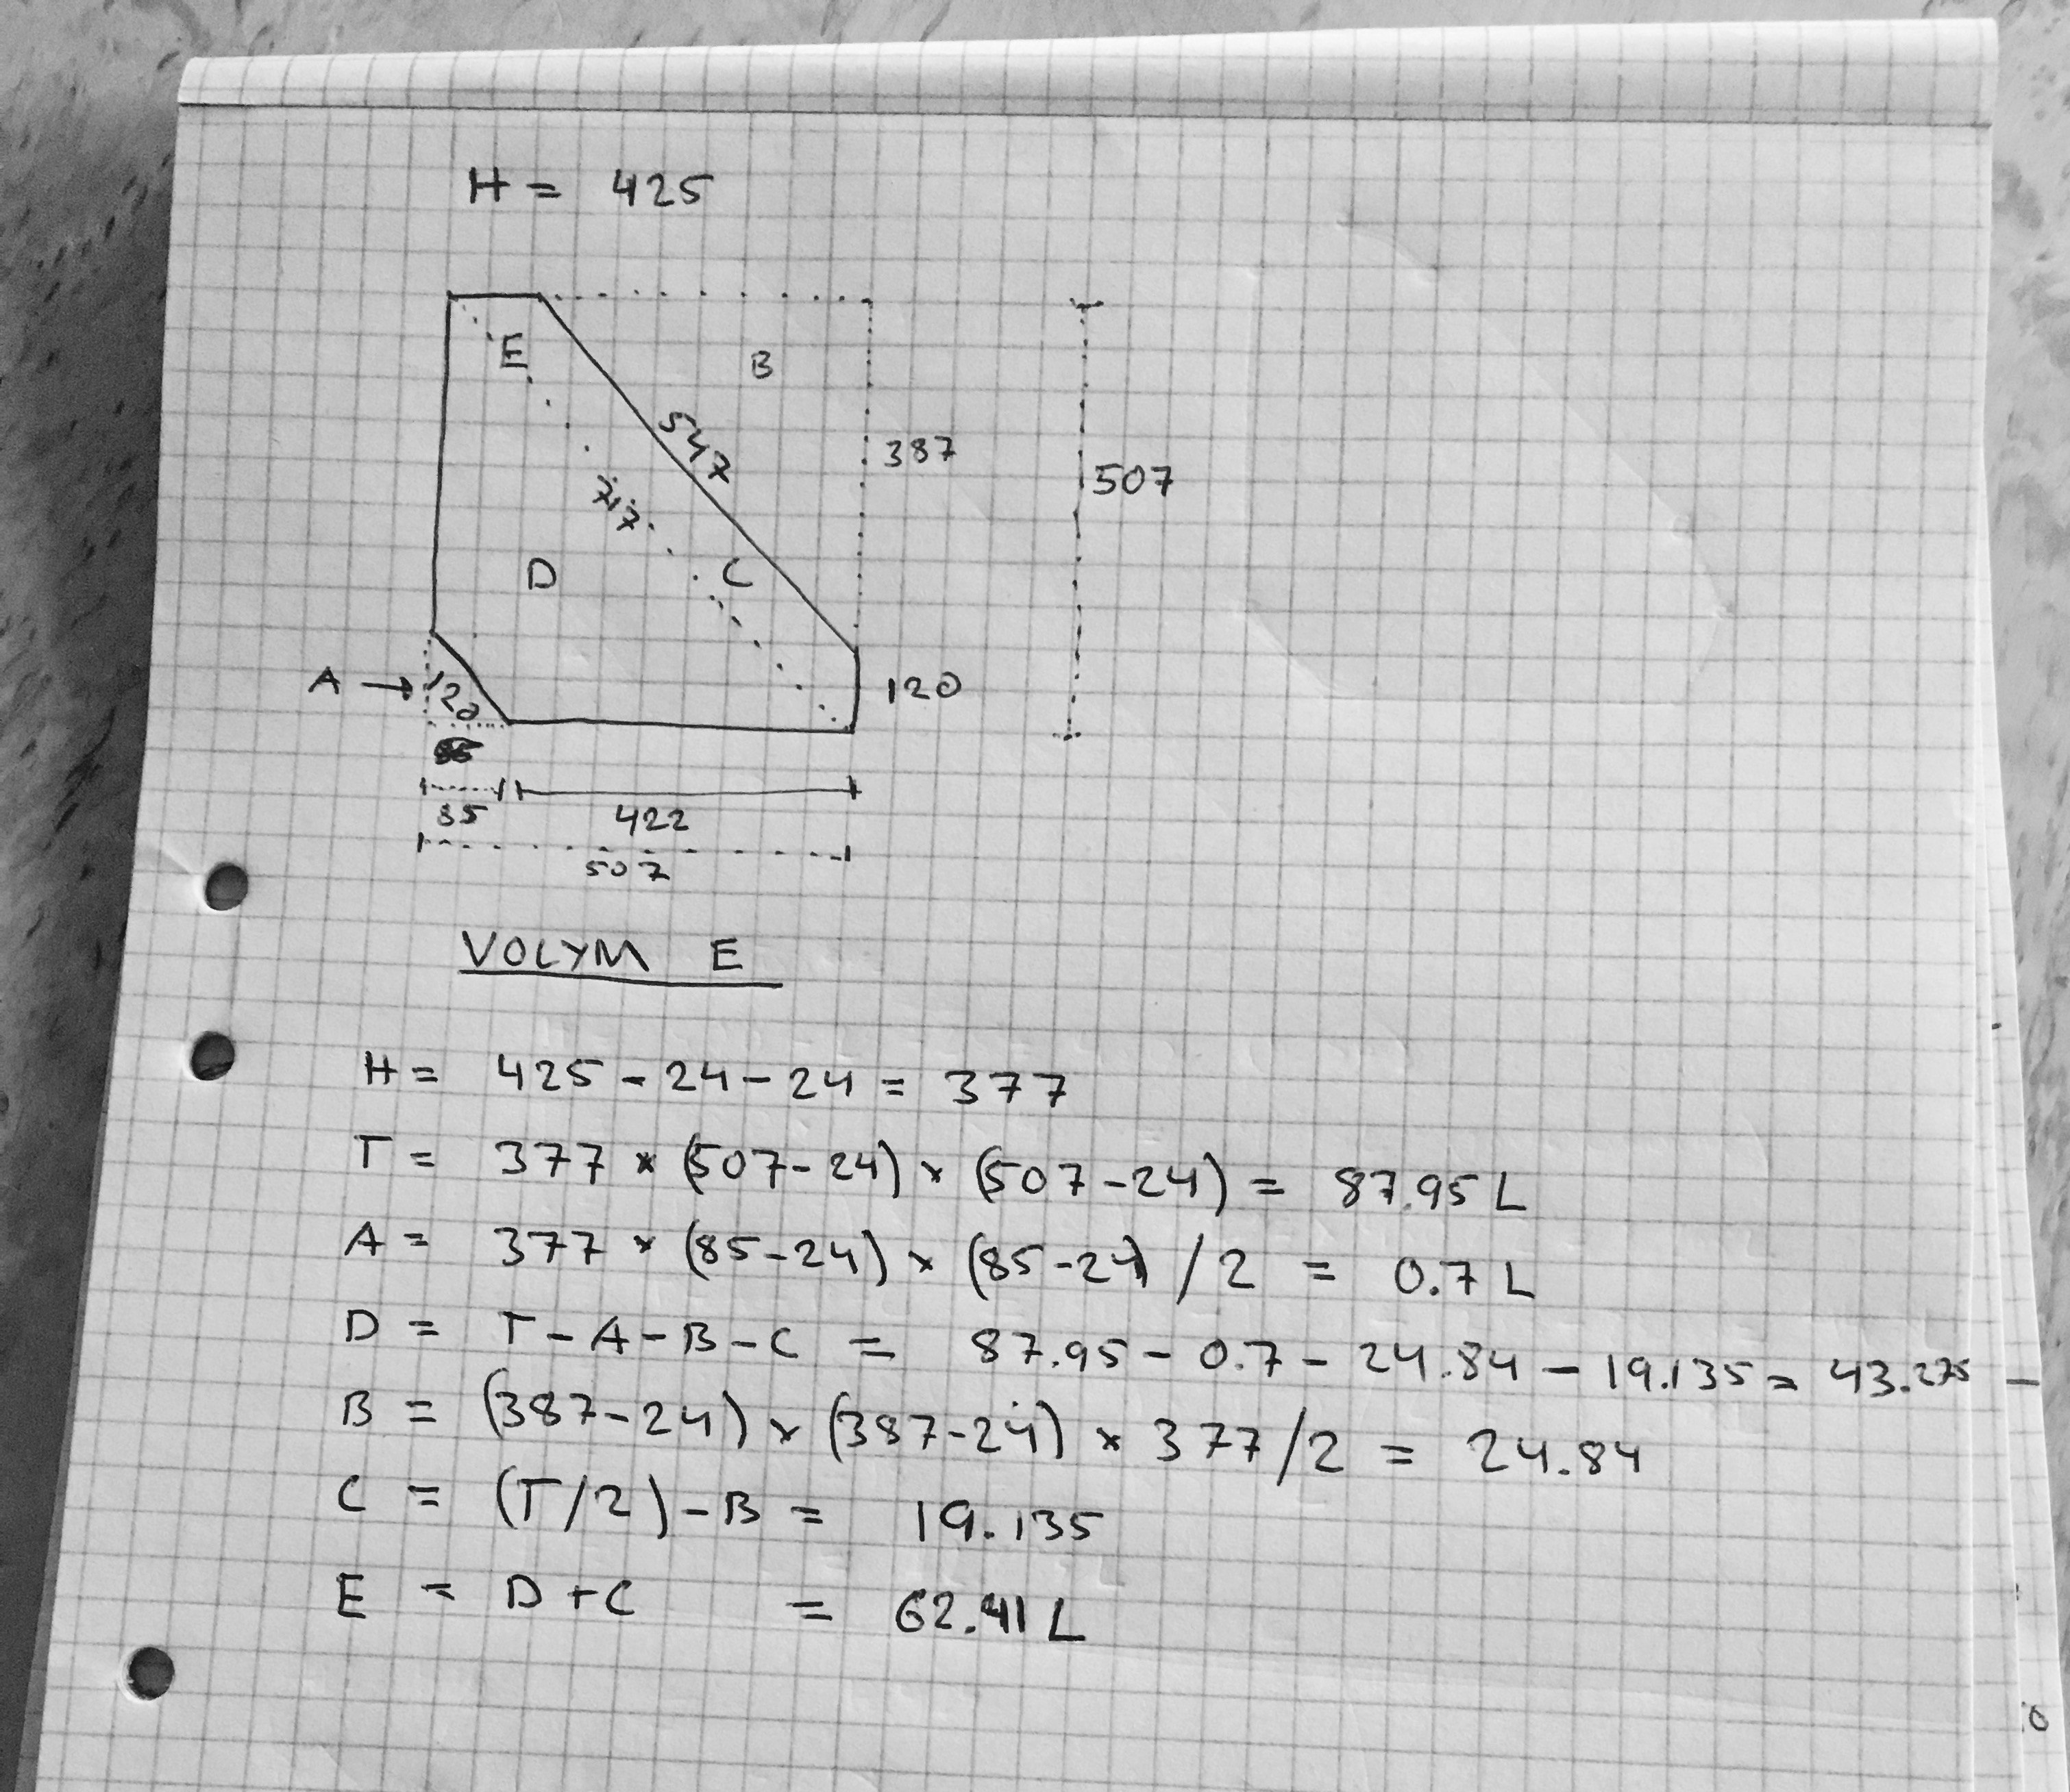 H = 425
E
B
547
387
507
717
D
C
A →
120
120
85
422
507
VOLYM E
H = 425 - 24 - 24 = 377
T = 377 * (507-24) x (507-24) = 87.95 L
A = 377 * (85-24) x (85-24) / 2 = 0.7 L
D = T - A - B - C = 87.95 - 0.7 - 24.84 - 19.135 = 43.275
B = (387-24) x (387-24) x 377/2 = 24.84
C = (T/2) - B = 19.135
E = D + C = 62.41 L